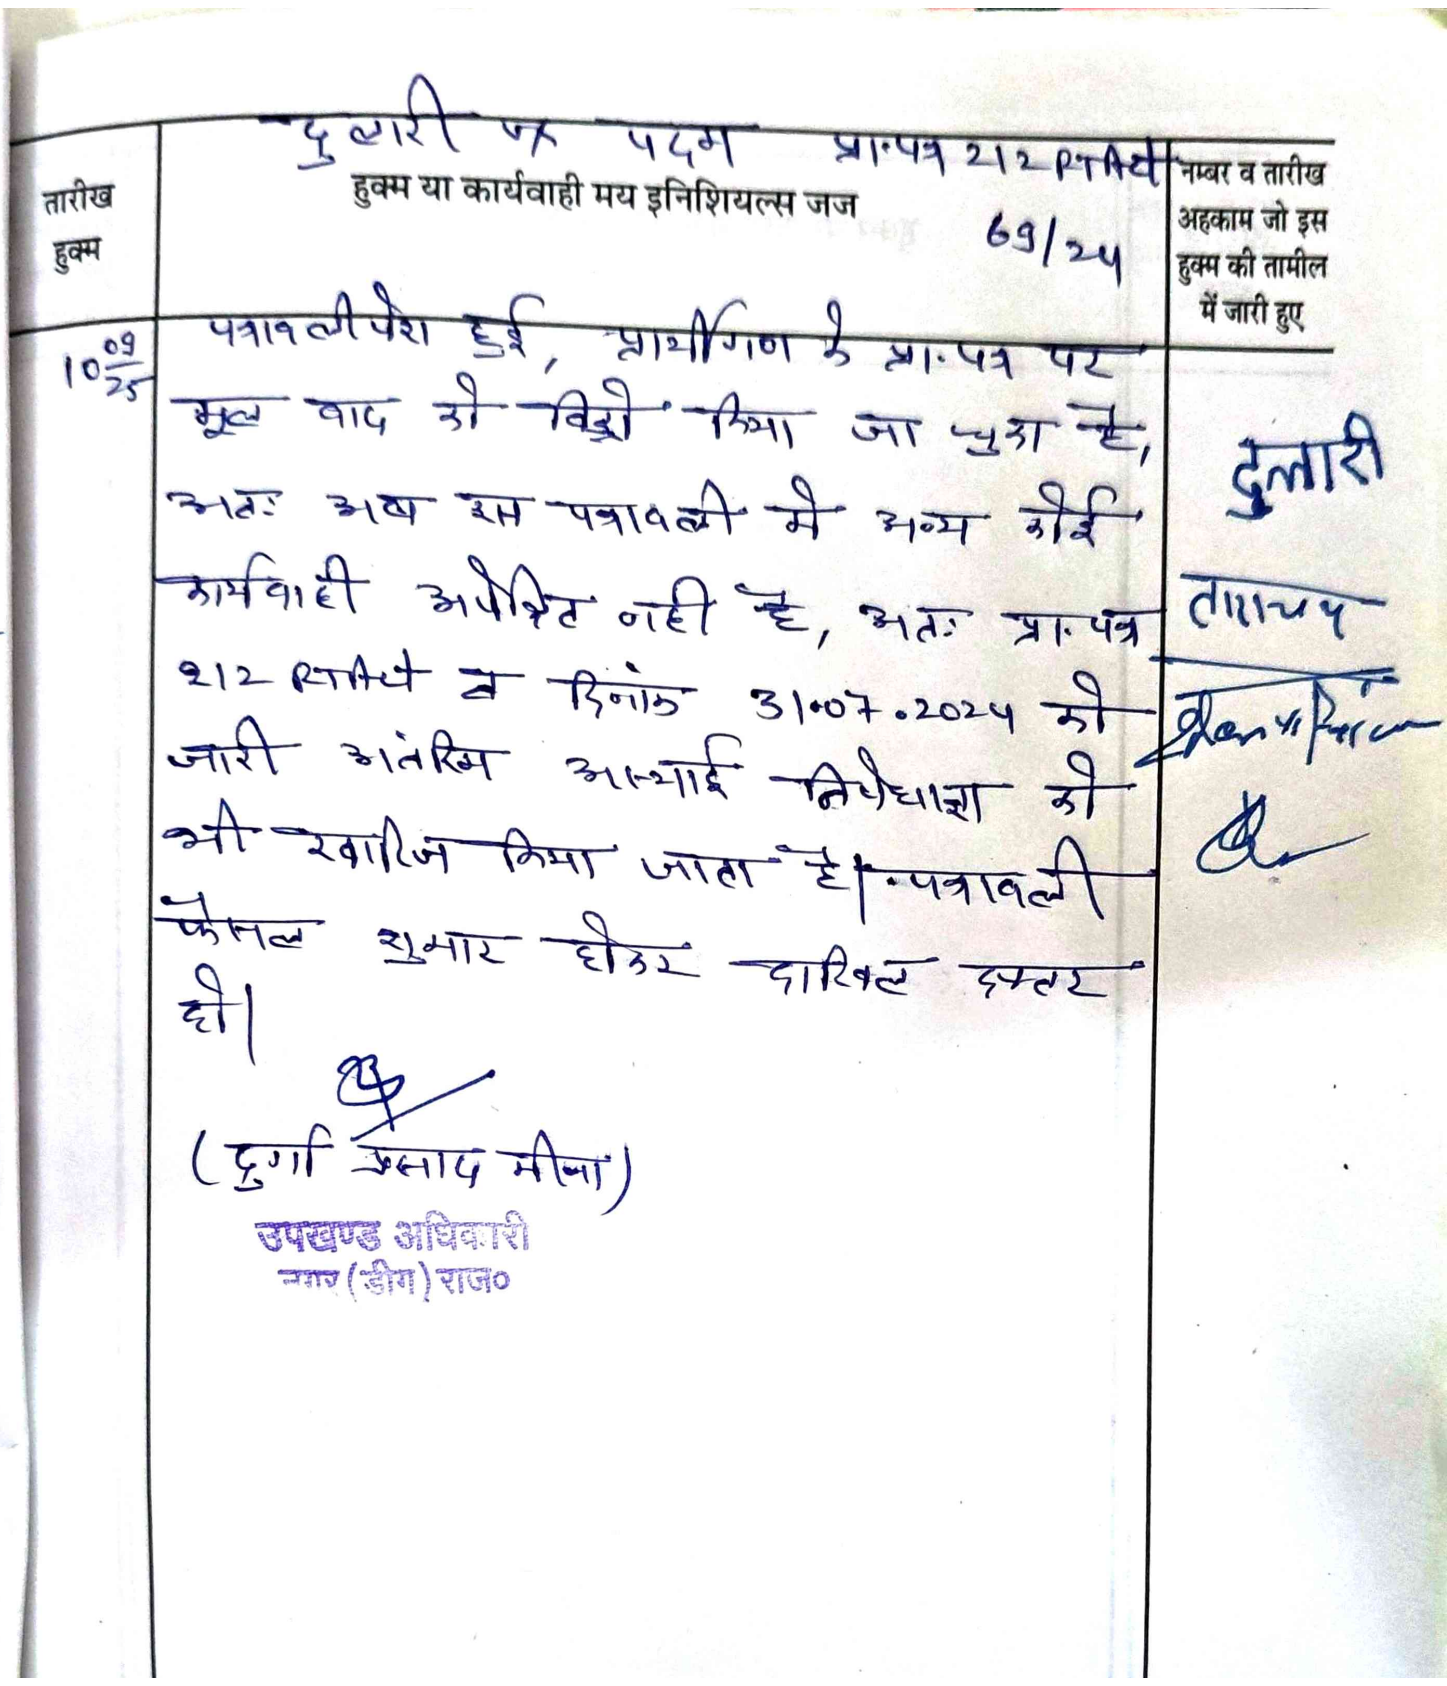 दुलारी पदम प्रा.पत्र 212 RTAct
तारीख
हुक्म
हुक्म या कार्यवाही मय इनिशियल्स जज
69/24
नम्बर व तारीख
अहकाम जो इस
हुक्म की तामील
में जारी हुए
10 09/25
पत्रावली पेश हुई, प्रार्थीगण के प्रा.पत्र पर
मूल वाद को विड्रो किया जा चुका है,
अतः अब इस पत्रावली में अन्य कोई
कार्यवाही अपेक्षित नही है, अतः प्रा.पत्र
212 RTAct व दिनांक 31.07.2024 को
जारी अंतरिम अस्थाई निषेधाज्ञा को
भी खारिज किया जाता है। पत्रावली
फैसल शुमार होकर दाखिल दफ्तर
हो।
दुलारी
(दुर्गा प्रसाद मीना)
उपखण्ड अधिकारी
नगर (डीग) राज०